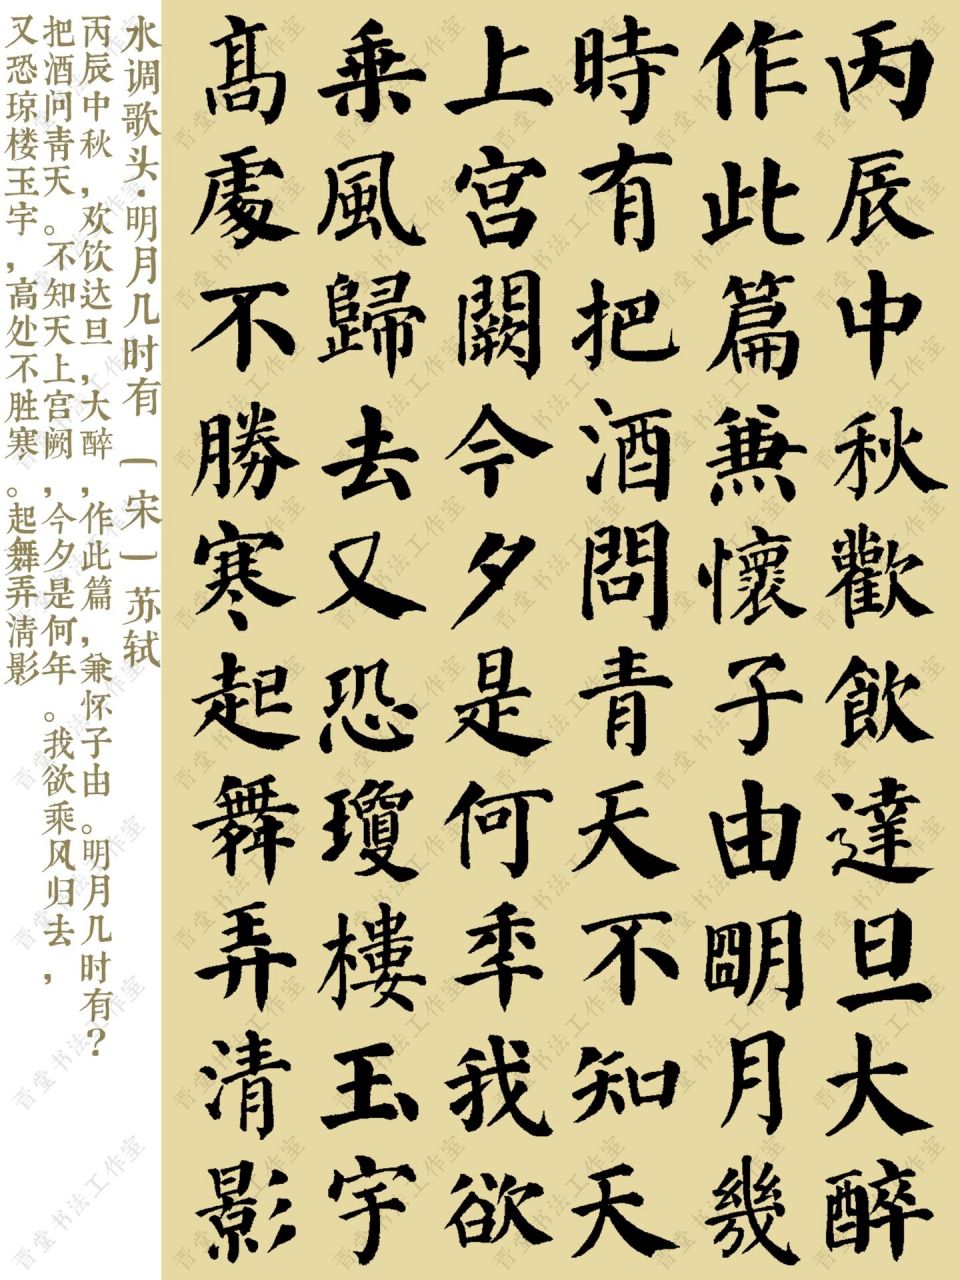 丙辰中秋歡飲達旦大醉
作此篇兼懷子由明月幾
時有把酒問青天不知天
上宮闕今夕是何年我欲
乘風歸去又恐瓊樓玉宇
高處不勝寒起舞弄清影
水调歌头·明月几时有 (宋) 苏轼
丙辰中秋,欢饮达旦,大醉,作此篇,兼怀子由。明月几时有?
把酒问青天。不知天上宫阙,今夕是何年。我欲乘风归去,
又恐琼楼玉宇,高处不胜寒。起舞弄清影
晋堂书法工作室